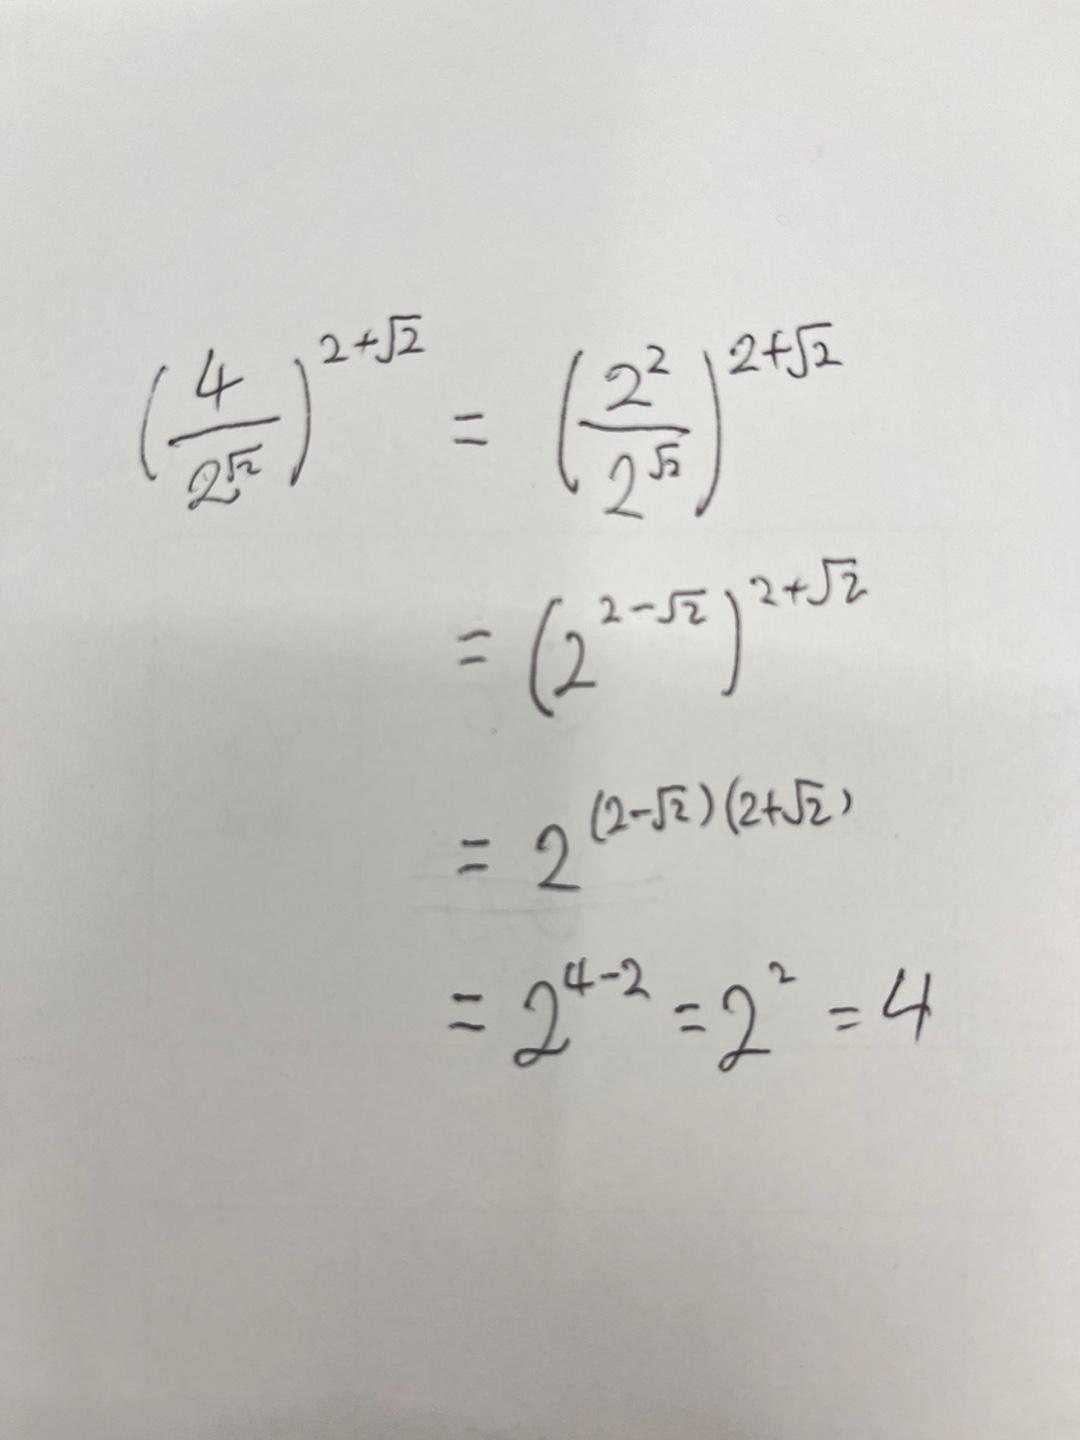 (4/2^√2)^(2+√2) = (2^2/2^√2)^(2+√2)
= (2^(2-√2))^(2+√2)
= 2^((2-√2)(2+√2))
= 2^(4-2) = 2^2 = 4